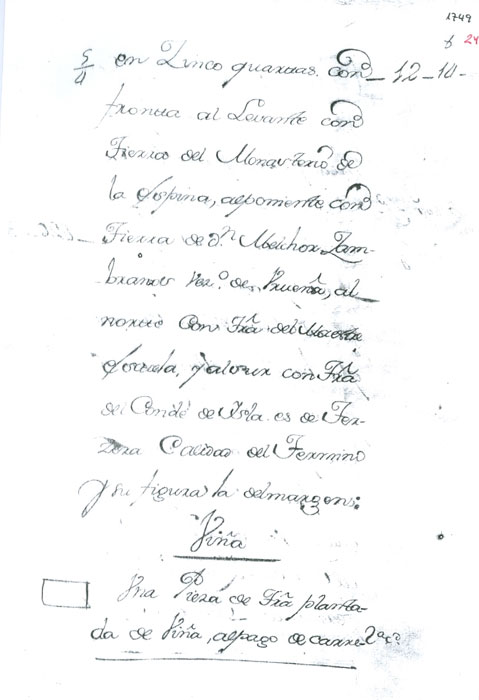 1749
f 24
5/4 en Zinco quartas. Con_12_14_
fronta al Levante con
Tierra del Monasterio de
la Espina, alponiente con
Tierra de Dn. Melchor Zam-
brano Vez.o de, al
norte Con Tra. del Maestre
Escuela, y alsur con Tra.
del Conde de Isla. es de Ter-
zera Calidad del Termino
y su figura la delmargen:
Viña
Una Pieza de Tra. planta-
da de Viña, alpago de carre